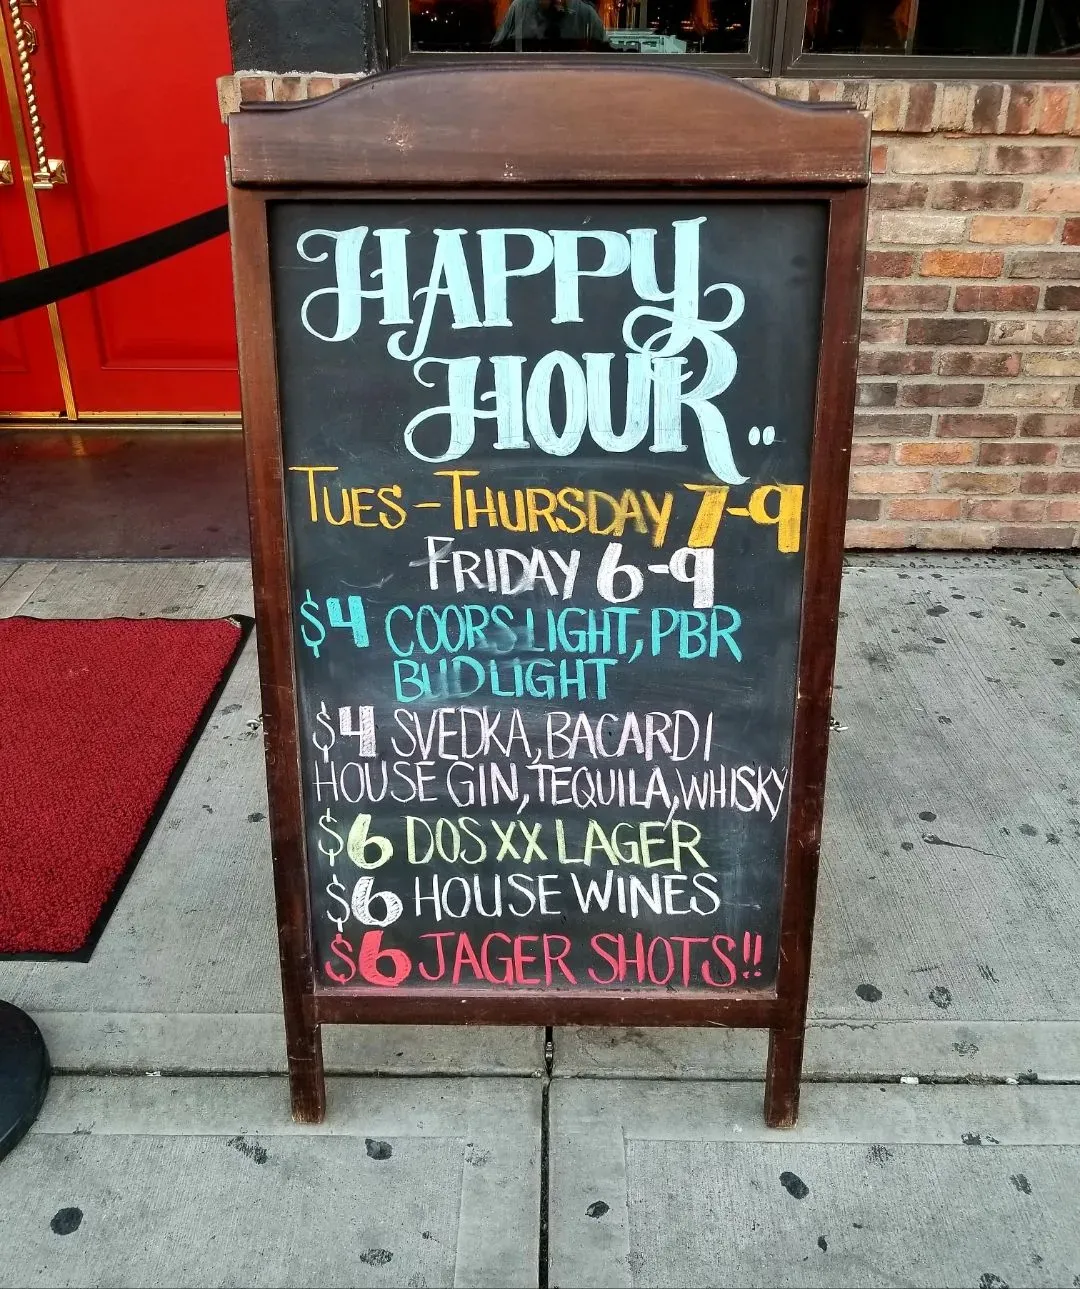 HAPPY
HOUR..
TUES - THURSDAY 7-9
FRIDAY 6-9
$4 COORS LIGHT, PBR
BUD LIGHT
$4 SVEDKA, BACARDI
HOUSE GIN, TEQUILA, WHISKY
$6 DOS XX LAGER
$6 HOUSE WINES
$6 JAGER SHOTS!!